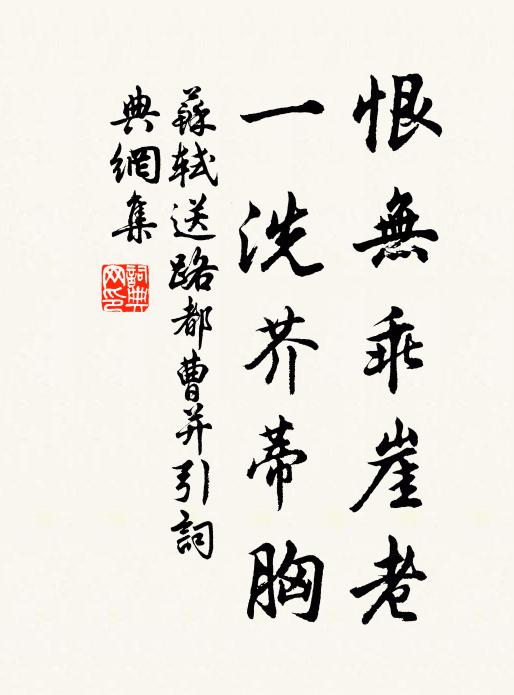 恨無乖崖老
一洗芥蒂胸
蘇軾送路都曹并引詞
典網集
詞典
网印